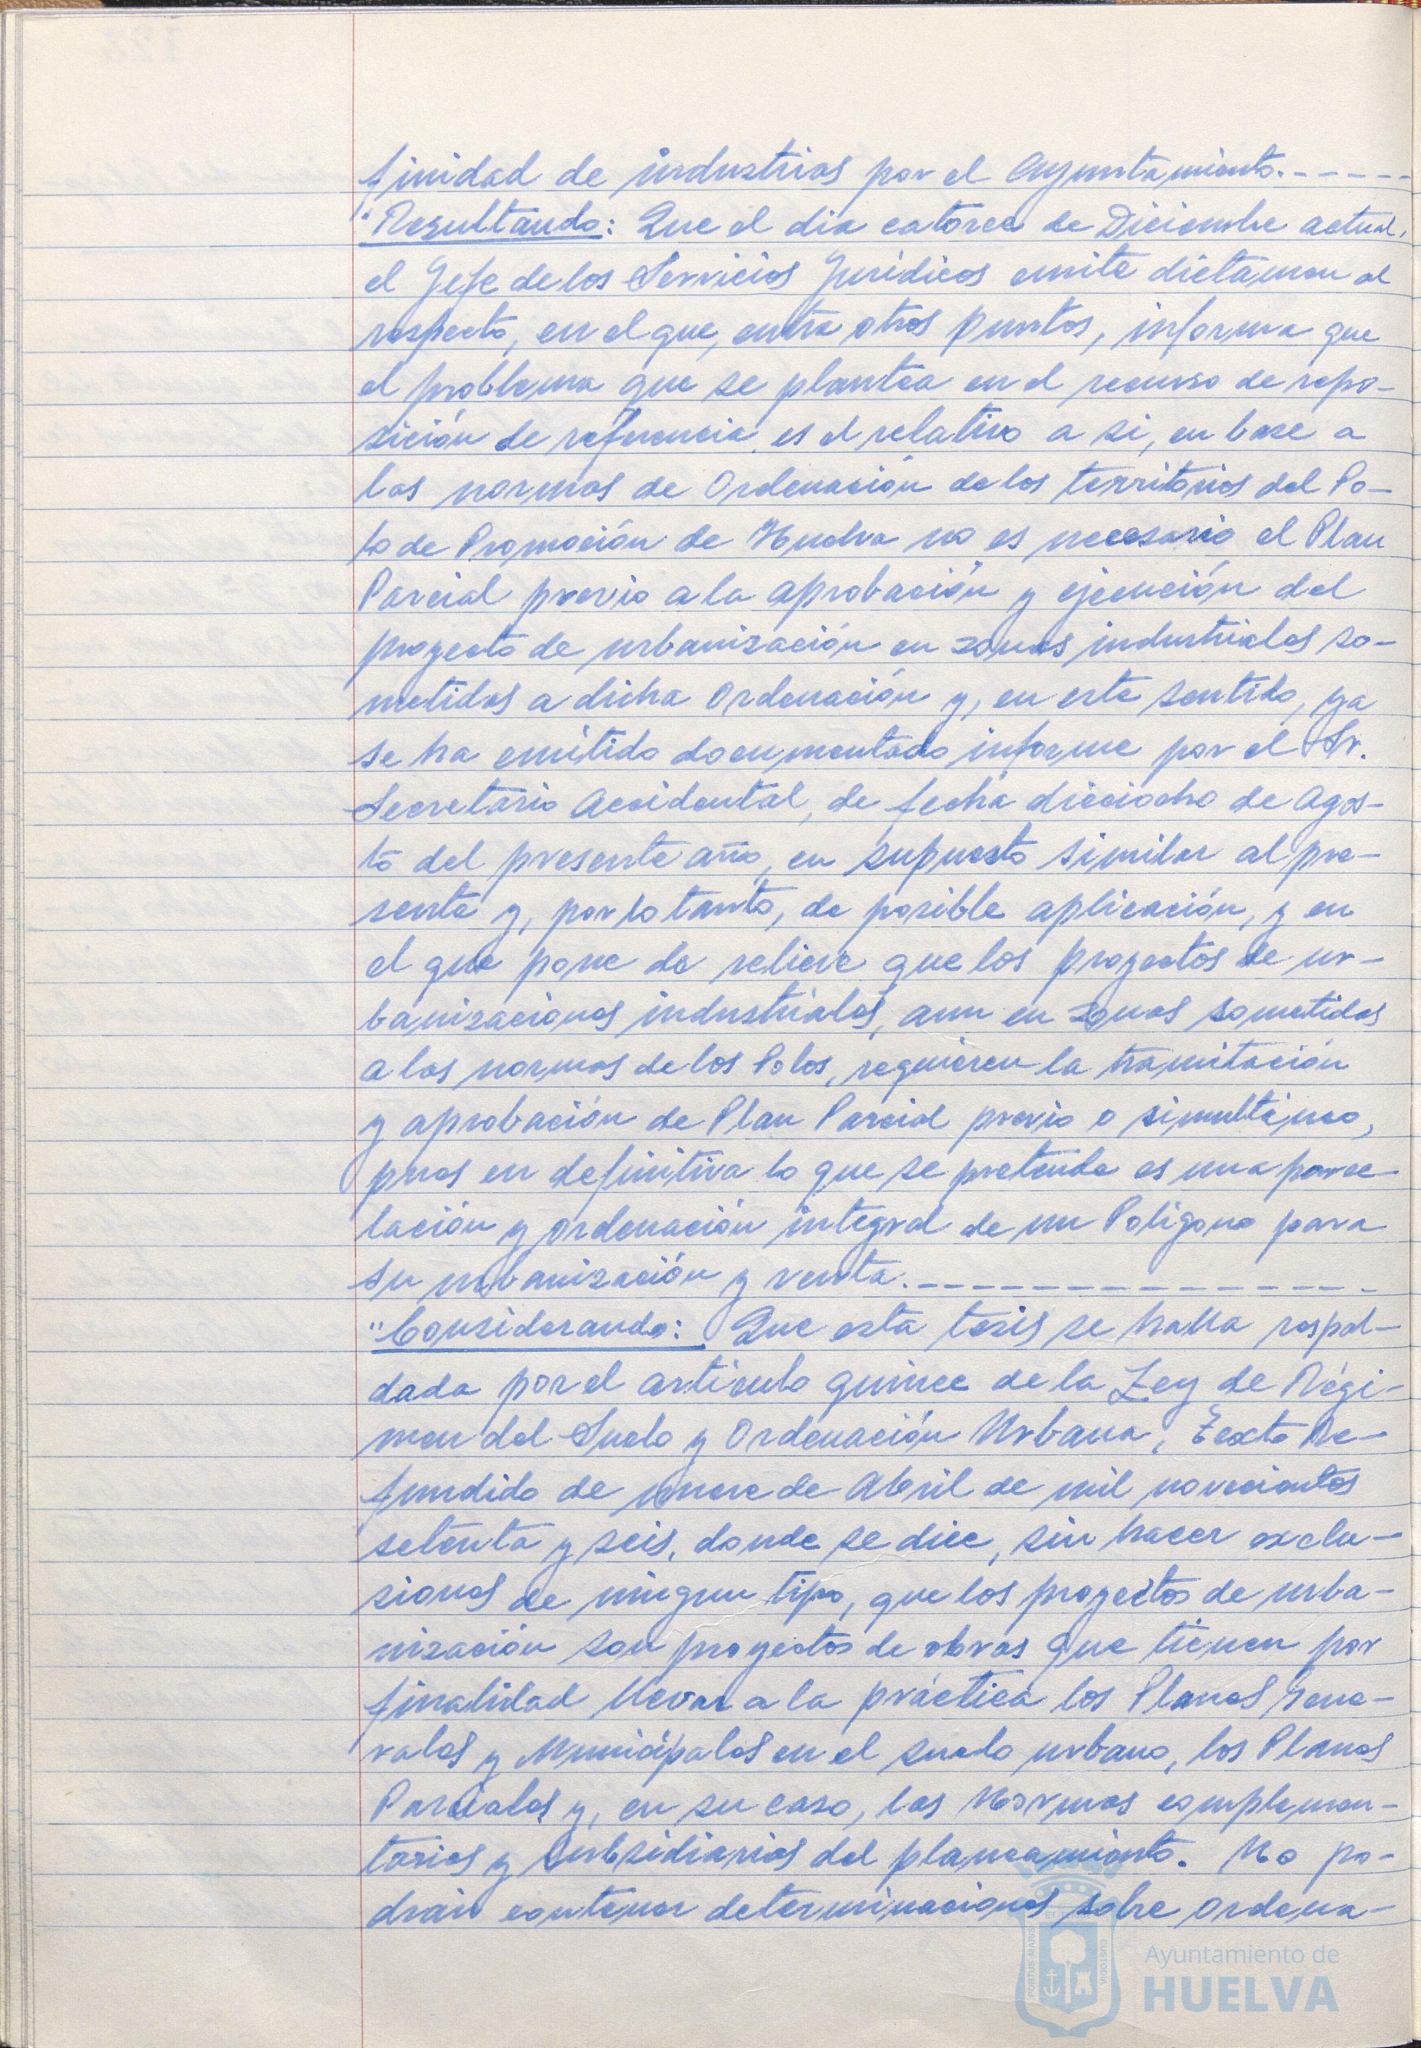 finidad de industrias por el Ayuntamiento.------
"Resultando: Que el dia catorce de Diciembre actual,
el Jefe de los Servicios Jurídicos emite dictamen al
respecto, en el que, entre otros puntos, informa que
el problema que se plantea en el recurso de repo-
sición de referencia es el relativo a si, en base a
las normas de Ordenación de los territorios del Po-
lo de Promoción de Huelva no es necesario el Plan
Parcial previo a la aprobación y ejecución del
proyecto de urbanización en zonas industriales so-
metidas a dicha Ordenación y, en este sentido, ya
se ha emitido documentado informe por el Sr.
Secretario Accidental, de fecha dieciocho de Agos-
to del presente año, en supuesto similar al pre-
sente y, por lo tanto, de posible aplicación, y en
el que pone de relieve que los proyectos de ur-
banizaciones industriales, aun en zonas sometidas
a las normas de los Polos, requieren la tramitación
y aprobación de Plan Parcial previo o simultáneo,
pues en definitiva lo que se pretende es una parce-
lación y ordenación integral de un Polígono para
su urbanización y venta.-------------
"Considerando: Que esta tesis se halla respal-
dada por el artículo quince de la Ley de Régi-
men del Suelo y Ordenación Urbana, Texto Re-
fundido de nueve de Abril de mil novecientos
setenta y seis, donde se dice, sin hacer exclu-
siones de ningun tipo, que los proyectos de urba-
nización son proyectos de obras que tienen por
finalidad llevar a la práctica los Planes Gene-
rales y Municipales en el suelo urbano, los Planes
Parciales y, en su caso, las Normas complemen-
tarias y subsidiarias del planeamiento. No po-
drán contener determinaciones sobre ordena-
PORTUS MARIS
CUSTODIA
Ayuntamiento de
HUELVA